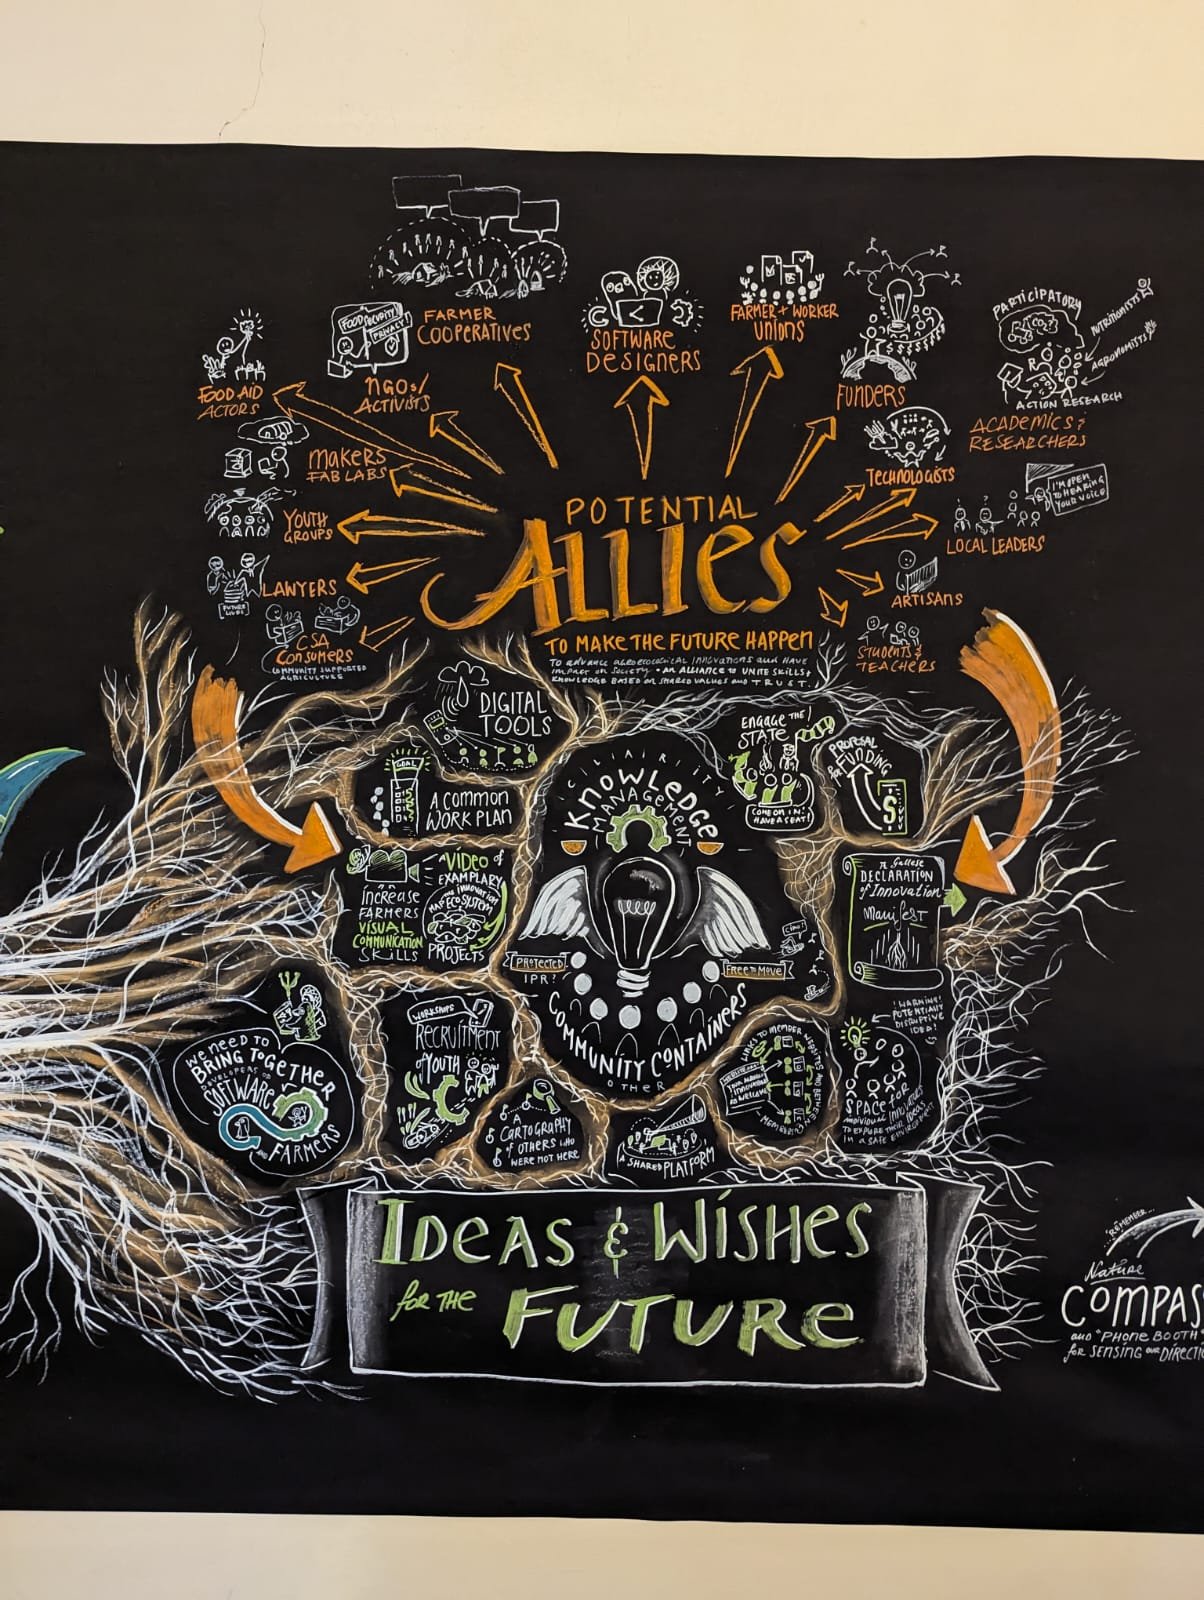 FOOD SECURITY
PRIVACY
FARMER
COOPERATIVES
SOFTWARE
DESIGNERS
FARMER + WORKER
UNIONS
FUNDERS
PARTICIPATORY
NUTRITIONISTS
AGRONOMISTS
ACTION RESEARCH
ACADEMICS &
RESEARCHERS
FOOD AID
ACTORS
NGOs/
ACTIVISTS
MAKERS
FAB LABS
TECHNOLOGISTS
I'M OPEN
TO HEARING
YOUR VOICE
LOCAL LEADERS
YOUTH
GROUPS
LAWYERS
ARTISANS
CSA
CONSUMERS
COMMUNITY SUPPORTED
AGRICULTURE
STUDENTS &
TEACHERS
POTENTIAL
ALLIES
TO MAKE THE FUTURE HAPPEN
TO ADVANCE AGROECOLOGICAL INNOVATIONS AND HAVE
IMPACT ON SOCIETY • AN ALLIANCE TO UNITE SKILLS +
KNOWLEDGE BASED ON SHARED VALUES AND TRUST.
DIGITAL
TOOLS
GOAL
A COMMON
WORK PLAN
VIDEO of
EXAMPLARY
PROJECTS
INCREASE
FARMERS
VISUAL
COMMUNICATION
SKILLS
KNOWLEDGE
MANAGEMENT
PROTECTED
IPR?
FREE TO MOVE
CIAO!
COMMUNITY CONTAINERS
OTHER
ENGAGE THE
STATE
COME ON IN!
HAVE A SEAT!
PROPOSAL
FOR FUNDING
$
DECLARATION
of Innovation
Manifest
! WARNING!
POTENTIALLY
DISRUPTIVE
IDEA!
SPACE FOR
INDIVIDUAL INNOVATORS
TO EXPLORE THEIR IDEAS
IN A SAFE ENVIRONMENT
WE NEED TO
BRING TOGETHER
DEVELOPERS OF
SOFTWARE
AND
FARMERS
WORKSHOPS
RECRUITMENT
of YOUTH
CARTOGRAPHY
of OTHERS WHO
WERE NOT HERE
A SHARED PLATFORM
LINKS TO MEMBER WEBSITES AND BETWEEN MEMBERS
IDEAS & WISHES
for THE
FUTURE
"REMEMBER...
Nature
COMPAS
AND "PHONE BOOTH"
for SENSING OUR DIRECTI